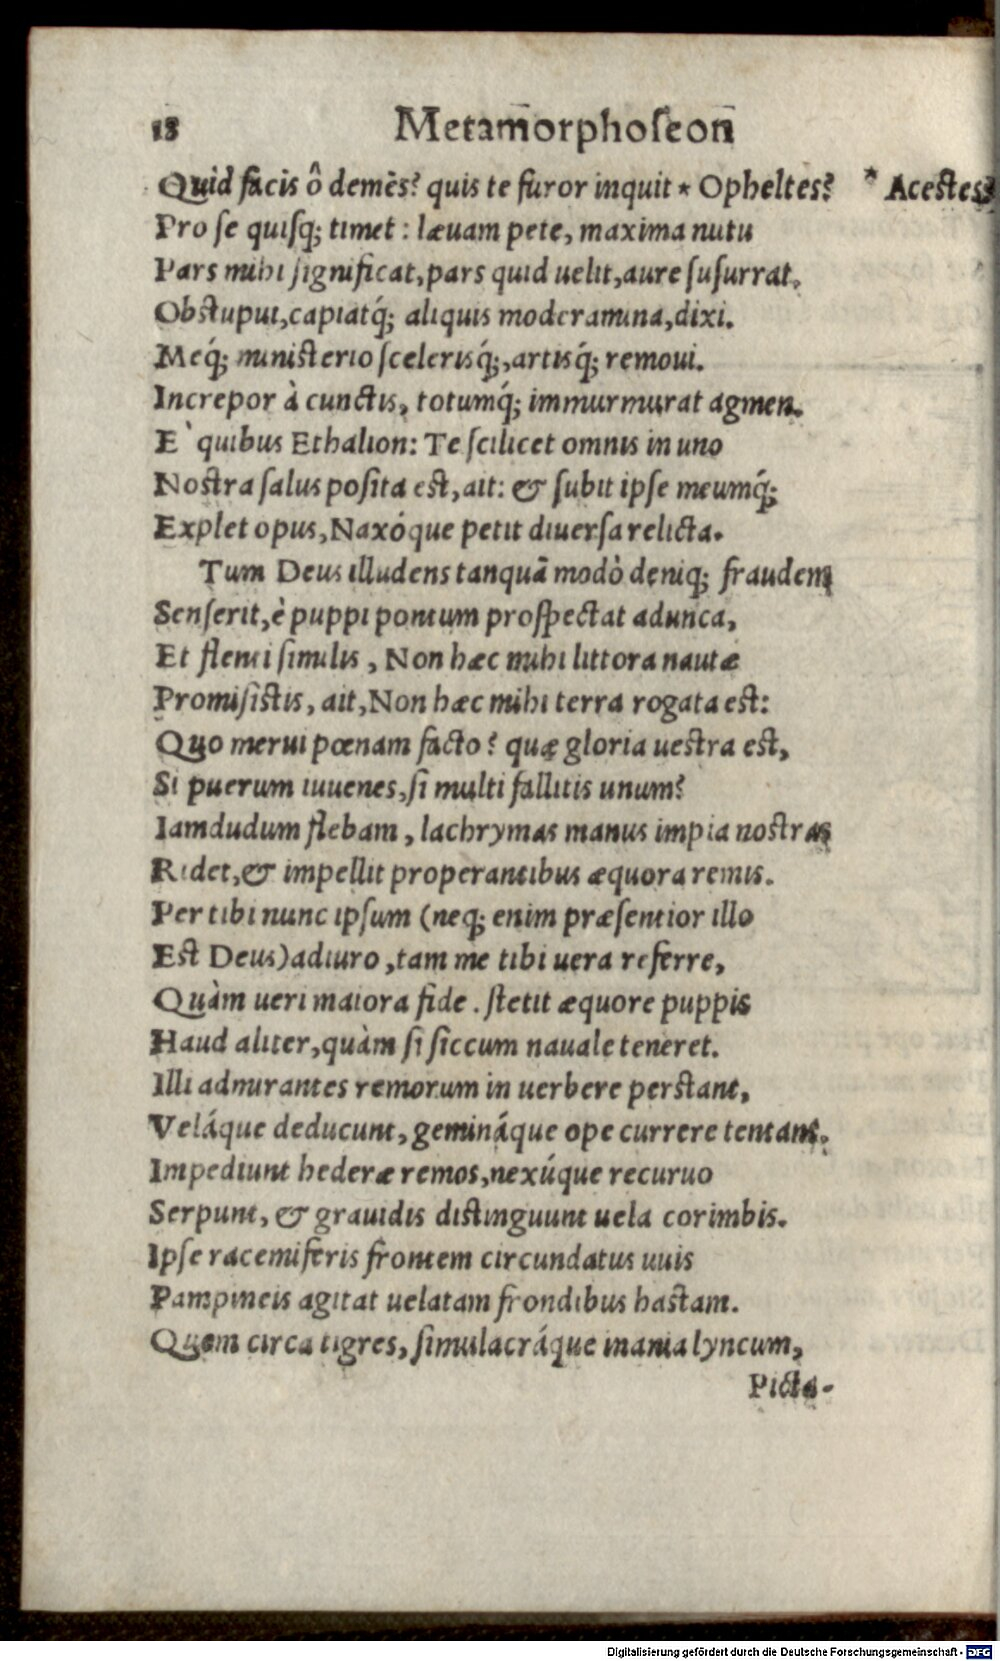 18 Metamorphoseon
Quid facis ô demẽs? quis te furor inquit * Opheltes? * Acestes?
Pro se quisq; timet: læuam pete, maxima nutu
Pars mihi significat, pars quid uelit, aure susurrat.
Obstupui, capiatq́; aliquis moderamina, dixi.
Meq́; ministerio scelerisq́;, artisq́; remoui.
Increpor à cunctis, totumq́; immurmurat agmen.
E` quibus Ethalion: Te scilicet omnis in uno
Nostra salus posita est, ait: & subit ipse meumq́;
Explet opus, Naxóque petit diuersa relicta.
Tum Deus illudens tanquã modò deniq; fraudem
Senserit, è puppi pontum prospectat adunca,
Et flenti similis, Non hæc mihi littora nautæ
Promisistis, ait, Non hæc mihi terra rogata est:
Quo merui pœnam facto? quæ gloria uestra est,
Si puerum iuuenes, si multi fallitis unum?
Iamdudum flebam, lachrymas manus impia nostras
Ridet, & impellit properantibus æquora remis.
Per tibi nunc ipsum (neq; enim præsentior illo
Est Deus) adiuro, tam me tibi uera referre,
Quàm ueri maiora fide. stetit æquore puppis
Haud aliter, quàm si siccum nauale teneret.
Illi admirantes remorum in uerbere perstant,
Veláque deducunt, gemináque ope currere tentant.
Impediunt hederæ remos, nexúque recuruo
Serpunt, & grauidis distinguunt uela corimbis.
Ipse racemiferis frontem circundatus uuis
Pampineis agitat uelatam frondibus hastam.
Quem circa tigres, simulacráque inania lyncum,
Picta-
Digitalisierung gefördert durch die Deutsche Forschungsgemeinschaft - DFG